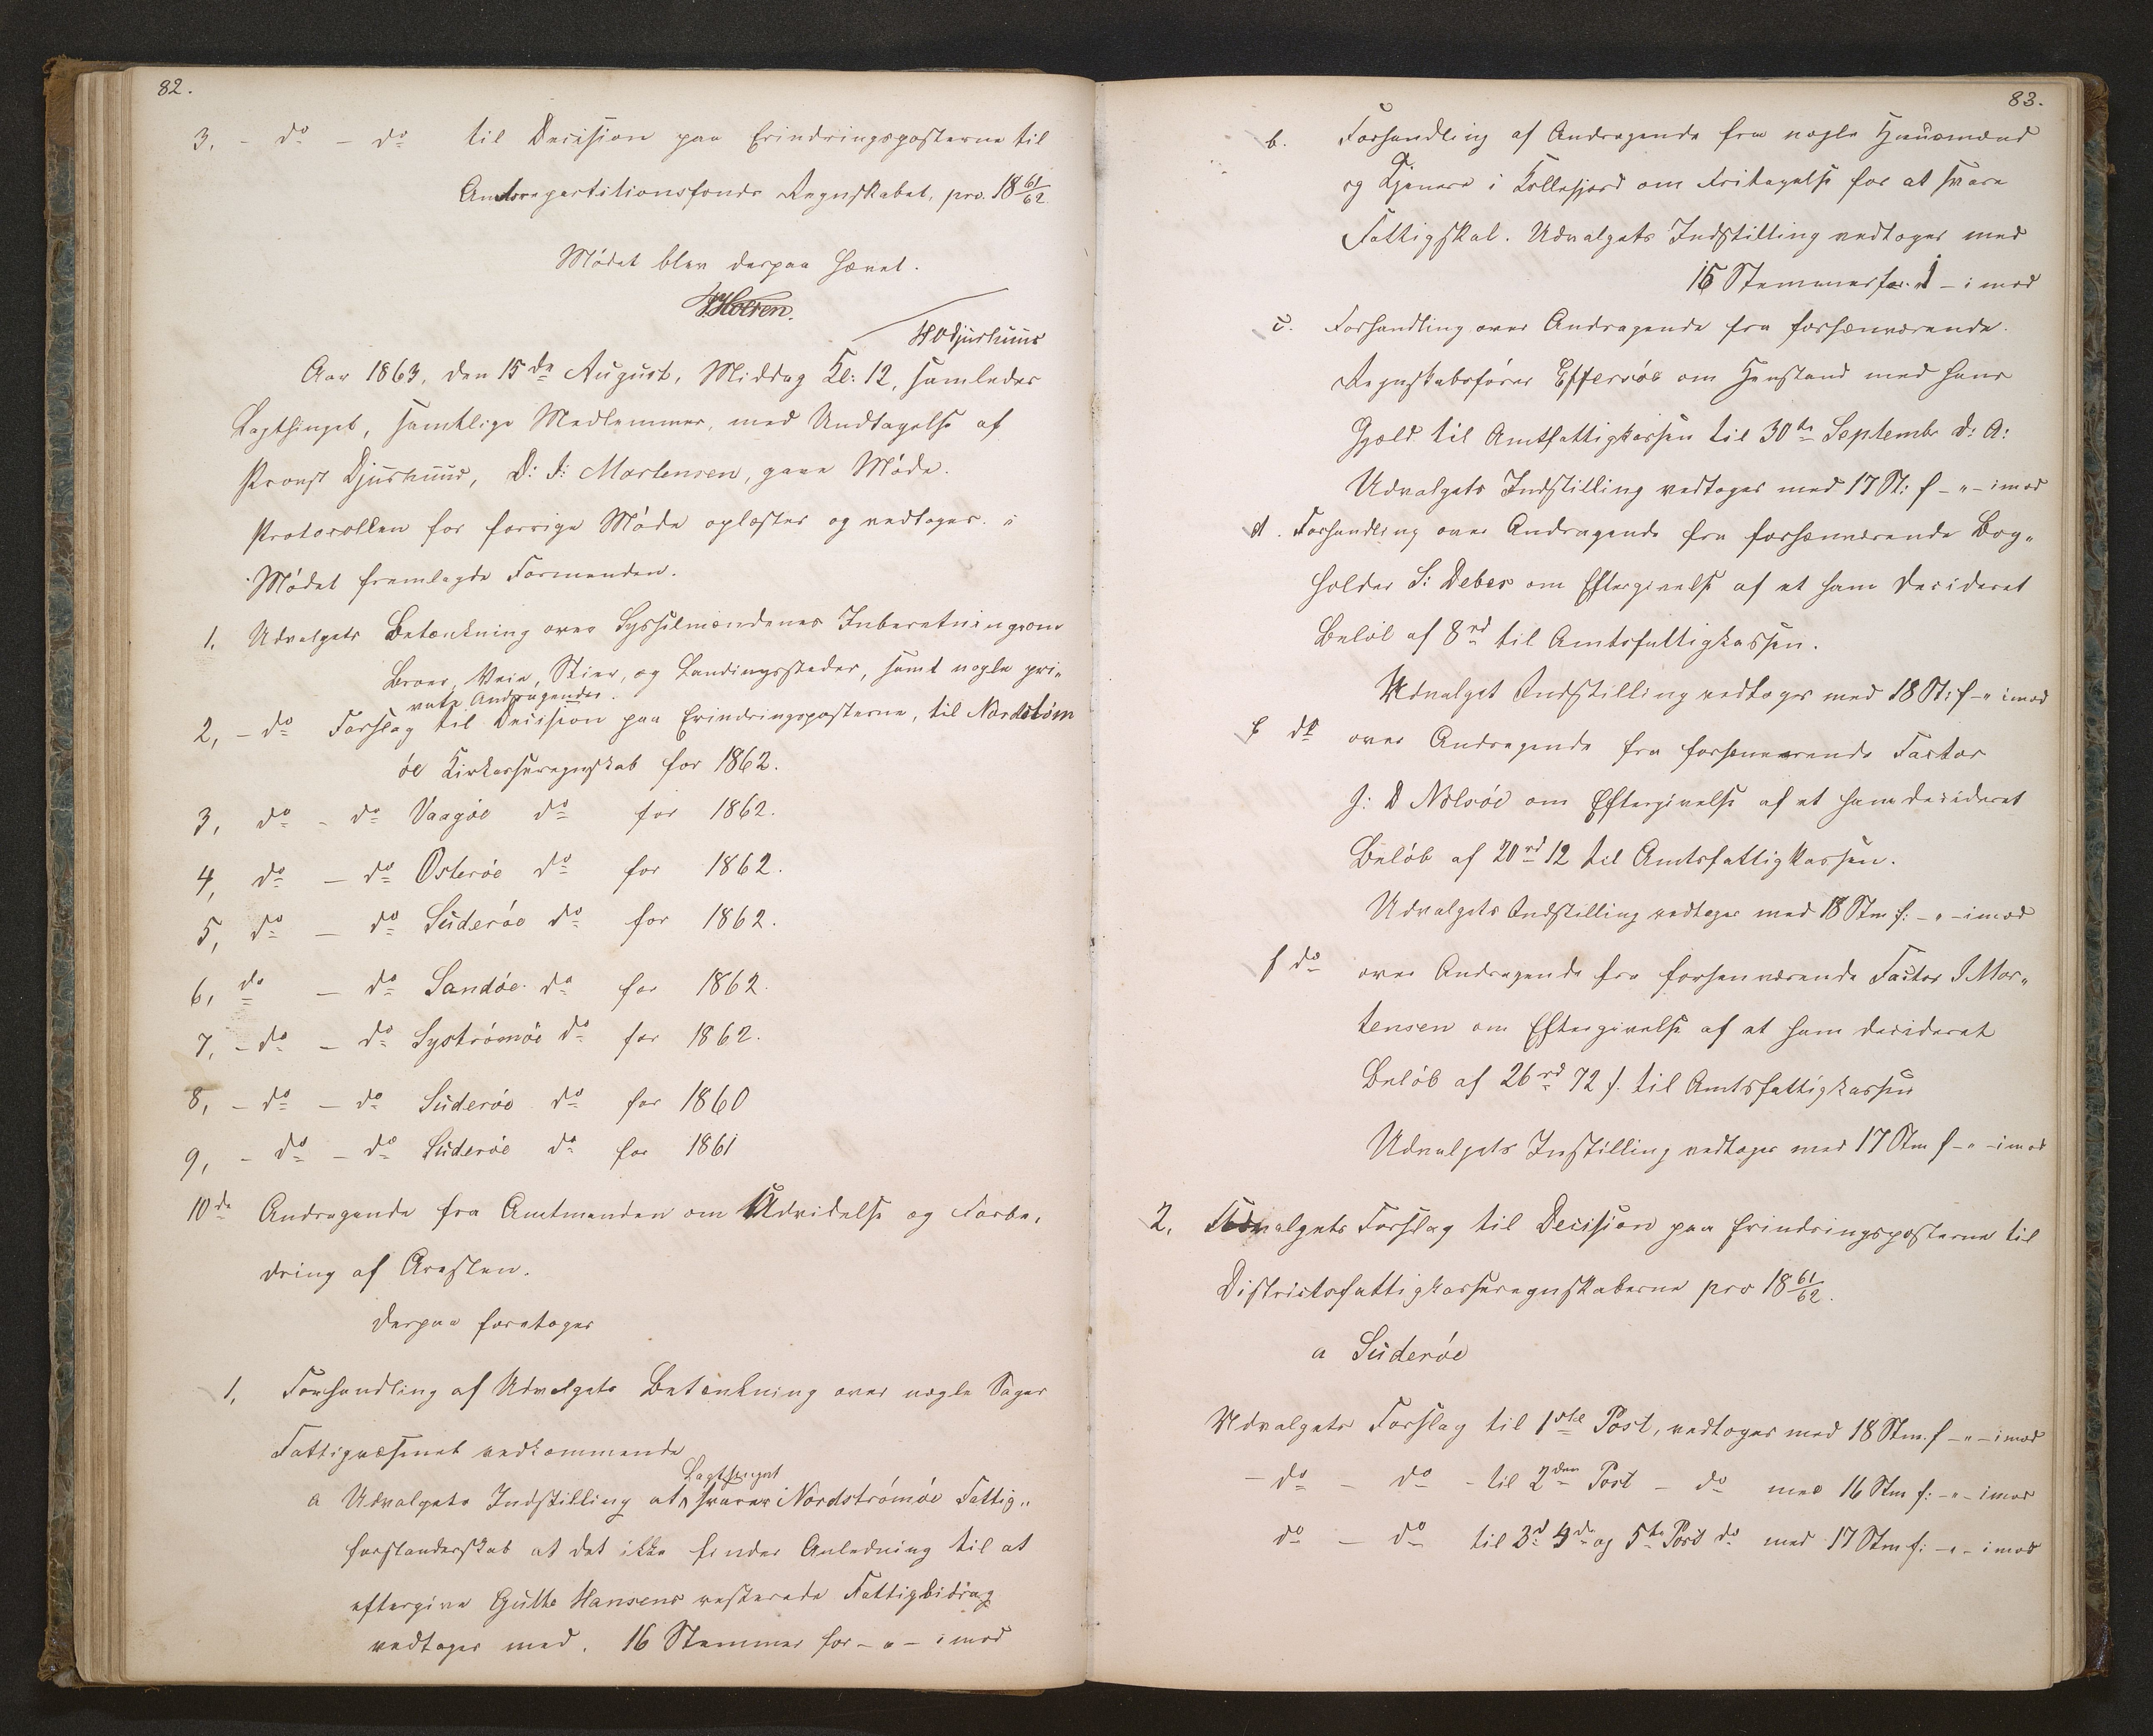 82.
3, - do - do til Decision paa Erindringsposterne til
Amtsrepartitionsfonds Regnskabet, pro. 18 61/62
Mødet blev derpaa hævet.
HDjurhuus
Aar 1863, den 15de August, Middag Kl: 12, samledes
Lagthinget, samtlige Medlemmer, med Undtagelse af
Provst Djurhuus, D: I: Mortensen, gave Møde.
Protocollen for forrige Møde oplæstes og vedtoges. i
Mødet fremlagde Formanden.
1, Udvalgets Betænkning over Sysselmændenes Inberetninger om
Broer, Veie, Stier, og Landingssteder, samt nogle pri„
vate Andragender.
2, - do Forslag til Decision paa Erindringsposterne, til Nordstöm
öe Kirkesseregnskab for 1862.
3, do - do Vaagöe do for 1862.
4, do - do Österöe do for 1862.
5, do - do Süderöe do for 1862.
6, do - do Sandöe do for 1862.
7, - do - do Syströmöe do for 1862.
8, - do - do Süderöe do for 1860
9, - do - do Süderöe do for 1861
10de Andragende fra Amtmanden om Udvidelse og Forbe,
dring af Aresten.
Derpaa foretoges
1, Forhandling af Udvalgets Betænkning over nogle Sager
Fattigvæsenet vedkommende
a Udvalgets Indstilling at Lagthinget svarer Nordströmöe Fattig„
forstanderskab at det ikke finder Anledning til at
eftergive Gutte Hansens resterende Fattigbidrag
vedtoges med. 16 Stemmer for - „ - imod
83.
b. Forhandling af Andragende fra nogle Huusmænd
og Tjenere i Kollefjord om Fritagelse for at svare
Fattigskat. Udvalgets Indstilling vedtoges med
16 Stemmer for. 1 - imod
c. Forhandling over Andragende fra forhenværende
Regnskabsfører Effersöe om Henstand med hans
Gjeld til Amtfattigkassen til 30te Septembr d: A:
Udvalgets Indstilling vedtoges med 17 St: f - „ - imod
d. Forhandling over Andragende fra forhenværende Bog„
holder S: Debes om Eftergivelse af et ham decideret
Beløb af 8rd til Amtsfattigkassen.
Udvalget Indstilling vedtoges med 18 St: f - „ imod
e do over Andragende fra forhenværende Factor
J: D Nolsöe om Eftergivelse af et ham decideret
Beløb af 20rd 12 til Amtsfattigkassen.
Udvalgets Indstilling vedtoges med 18 Stm f: - „ - imod
f do over Andragende fra forhenværende Factor J Mor„
tensen om Eftergivelse af et ham decideret
Beløb af 26rd 72 s. til Amtsfattigkassen
Udvalgets Instilling vedtoges med 17 Stm f - „ - imod
2. Udvalgets Forslag til Decision paa Erindringsposterne til
Districtsfattigkasseregnskaberne pro 18 61/62.
a Süderöe
Udvalgets Forslag til 1ste Post, vedtoges med 18 Stm. f - „ - imod
- do - do - til 2den Post - do med 16 Stm f: - „ - imod
do - do til 3d 4de og 5te Post do med 17 Stm f: - „ - imod